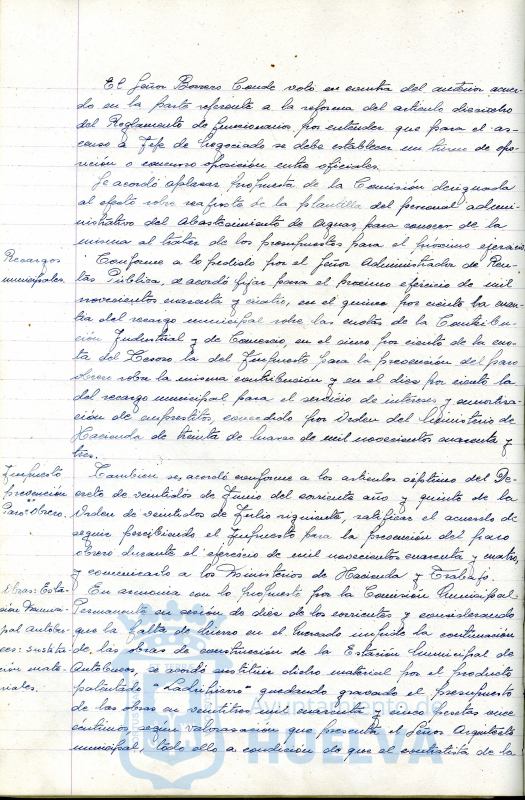 El Señor Borrero Conde votó en contra del anterior acuer-
do en la parte referente a la reforma del artículo dieciocho
del Reglamento de funcionarios por entender que para el as-
censo a Jefe de Negociado se debe establecer un turno de opo-
sición o concurso oposición entre oficiales.
Se acordó aplazar propuesta de la Comisión designada
al efecto sobre reajuste de la plantilla del personal admi-
nistrativo del Abastecimiento de Aguas, para conocer de la
misma al tratar de los presupuestos para el próximo ejercicio
Recargos
municipales.
Conforme a lo pedido por el Señor Administrador de Ren-
tas Públicas, se acordó fijar para el próximo ejercicio de mil
novecientos cuarenta y cuatro, en el quince por ciento la cuan-
tia del recargo municipal sobre las cuotas de la Contribu-
ción Industrial y de Comercio, en el cinco por ciento de la cuo-
ta del Tesoro la del Impuesto para la prevención del paro
obrero sobre la misma contribución y en el diez por ciento la
del recargo municipal para el servicio de intereses y amortiza-
ción de empréstitos, concedido por Orden del Ministerio de
Hacienda de treinta de marzo de mil novecientos cuarenta y
tres.
Impuesto
prevención
Paro Obrero.
Tambien se acordó conforme a los artículos séptimo del De-
creto de veintidos de Junio del corriente año y quinto de la
Orden de veintidos de Julio siguiente, ratificar el acuerdo de
seguir percibiendo el Impuesto para la prevención del paro
obrero durante el ejercicio de mil novecientos cuarenta y cuatro,
y comunicarlo a los Ministerios de Hacienda y Trabajo.
Obras: Esta-
ción Munici-
pal autobu-
ces: sustitu-
ción mate-
riales.
En armonia con lo propuesto por la Comisión Municipal
Permanente en sesión de diez de los corrientes y considerando
que la falta de hierro en el mercado impide la continuación
de las obras de construcción de la Estación Municipal de
Autobuces, se acordó sustituir dicho material por el producto
patentado "Ladrihierro" quedando gravado el presupuesto
de las obras en veintitres mil cuarenta y cinco pesetas once
céntimos, según valoracasión que presenta el Señor Arquitecto
municipal. Todo ello a condición de que el contratista de la
Ayuntamiento de
HUELVA